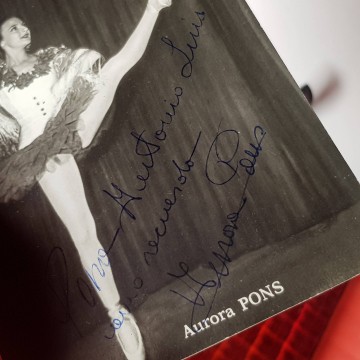 Para Antonio Luis
como recuerdo
Aurora Pons
Aurora PONS